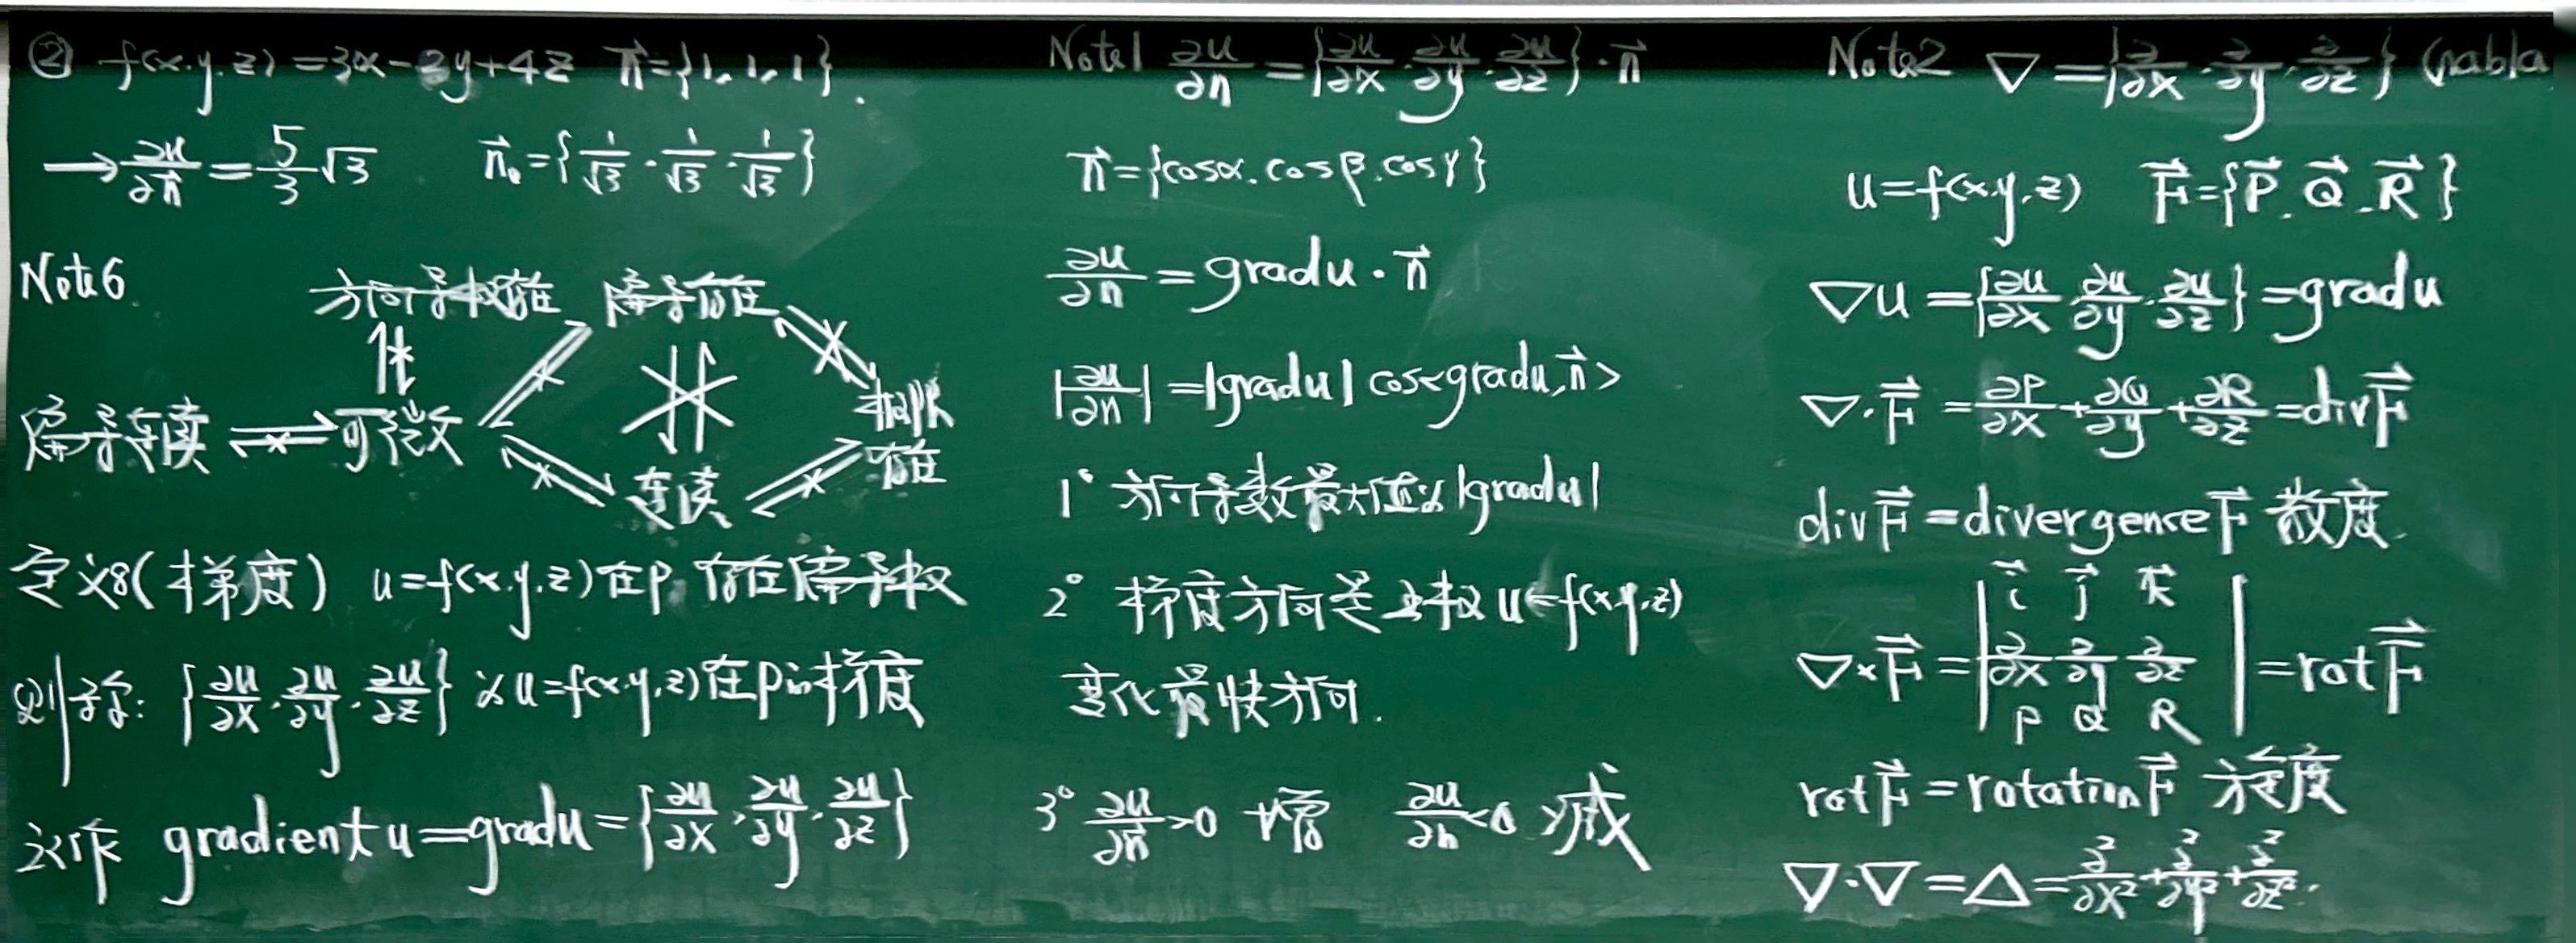 ② f(x,y,z)=3x-2y+4z n⃗={1,1,1}.
→∂u/∂n⃗=5/3√3 n⃗₀={1/√3,1/√3,1/√3}
Note6.
方向导数存在 偏导存在
偏导连续 可微 极限存在
连续
定义8(梯度) u=f(x,y,z)在P。存在偏导数
则称:{∂u/∂x,∂u/∂y,∂u/∂z}为u=f(x,y,z)在P的梯度
记作 gradient u=gradu={∂u/∂x,∂u/∂y,∂u/∂z}
Note1 ∂u/∂n={∂u/∂x,∂u/∂y,∂u/∂z}·n⃗
n⃗={cosα,cosβ,cosγ}
∂u/∂n=gradu·n⃗
|∂u/∂n|=|gradu|cos<gradu,n⃗>
1° 方向导数最大值为|gradu|
2° 梯度方向是函数u=f(x,y,z)
变化最快方向.
3° ∂u/∂n⃗>0 增 ∂u/∂n<0 减
Note2 ∇={∂/∂x,∂/∂y,∂/∂z} (nabla
u=f(x,y,z) F⃗={P⃗,Q⃗,R⃗}
∇u={∂u/∂x,∂u/∂y,∂u/∂z}=gradu
∇·F⃗=∂P/∂x+∂Q/∂y+∂R/∂z=divF⃗
divF⃗=divergenceF⃗ 散度.
∇×F⃗=|i⃗ j⃗ k⃗; ∂/∂x ∂/∂y ∂/∂z; P Q R|=rotF⃗
rotF⃗=rotationF⃗ 旋度
∇·∇=△=∂²/∂x²+∂²/∂y²+∂²/∂z².